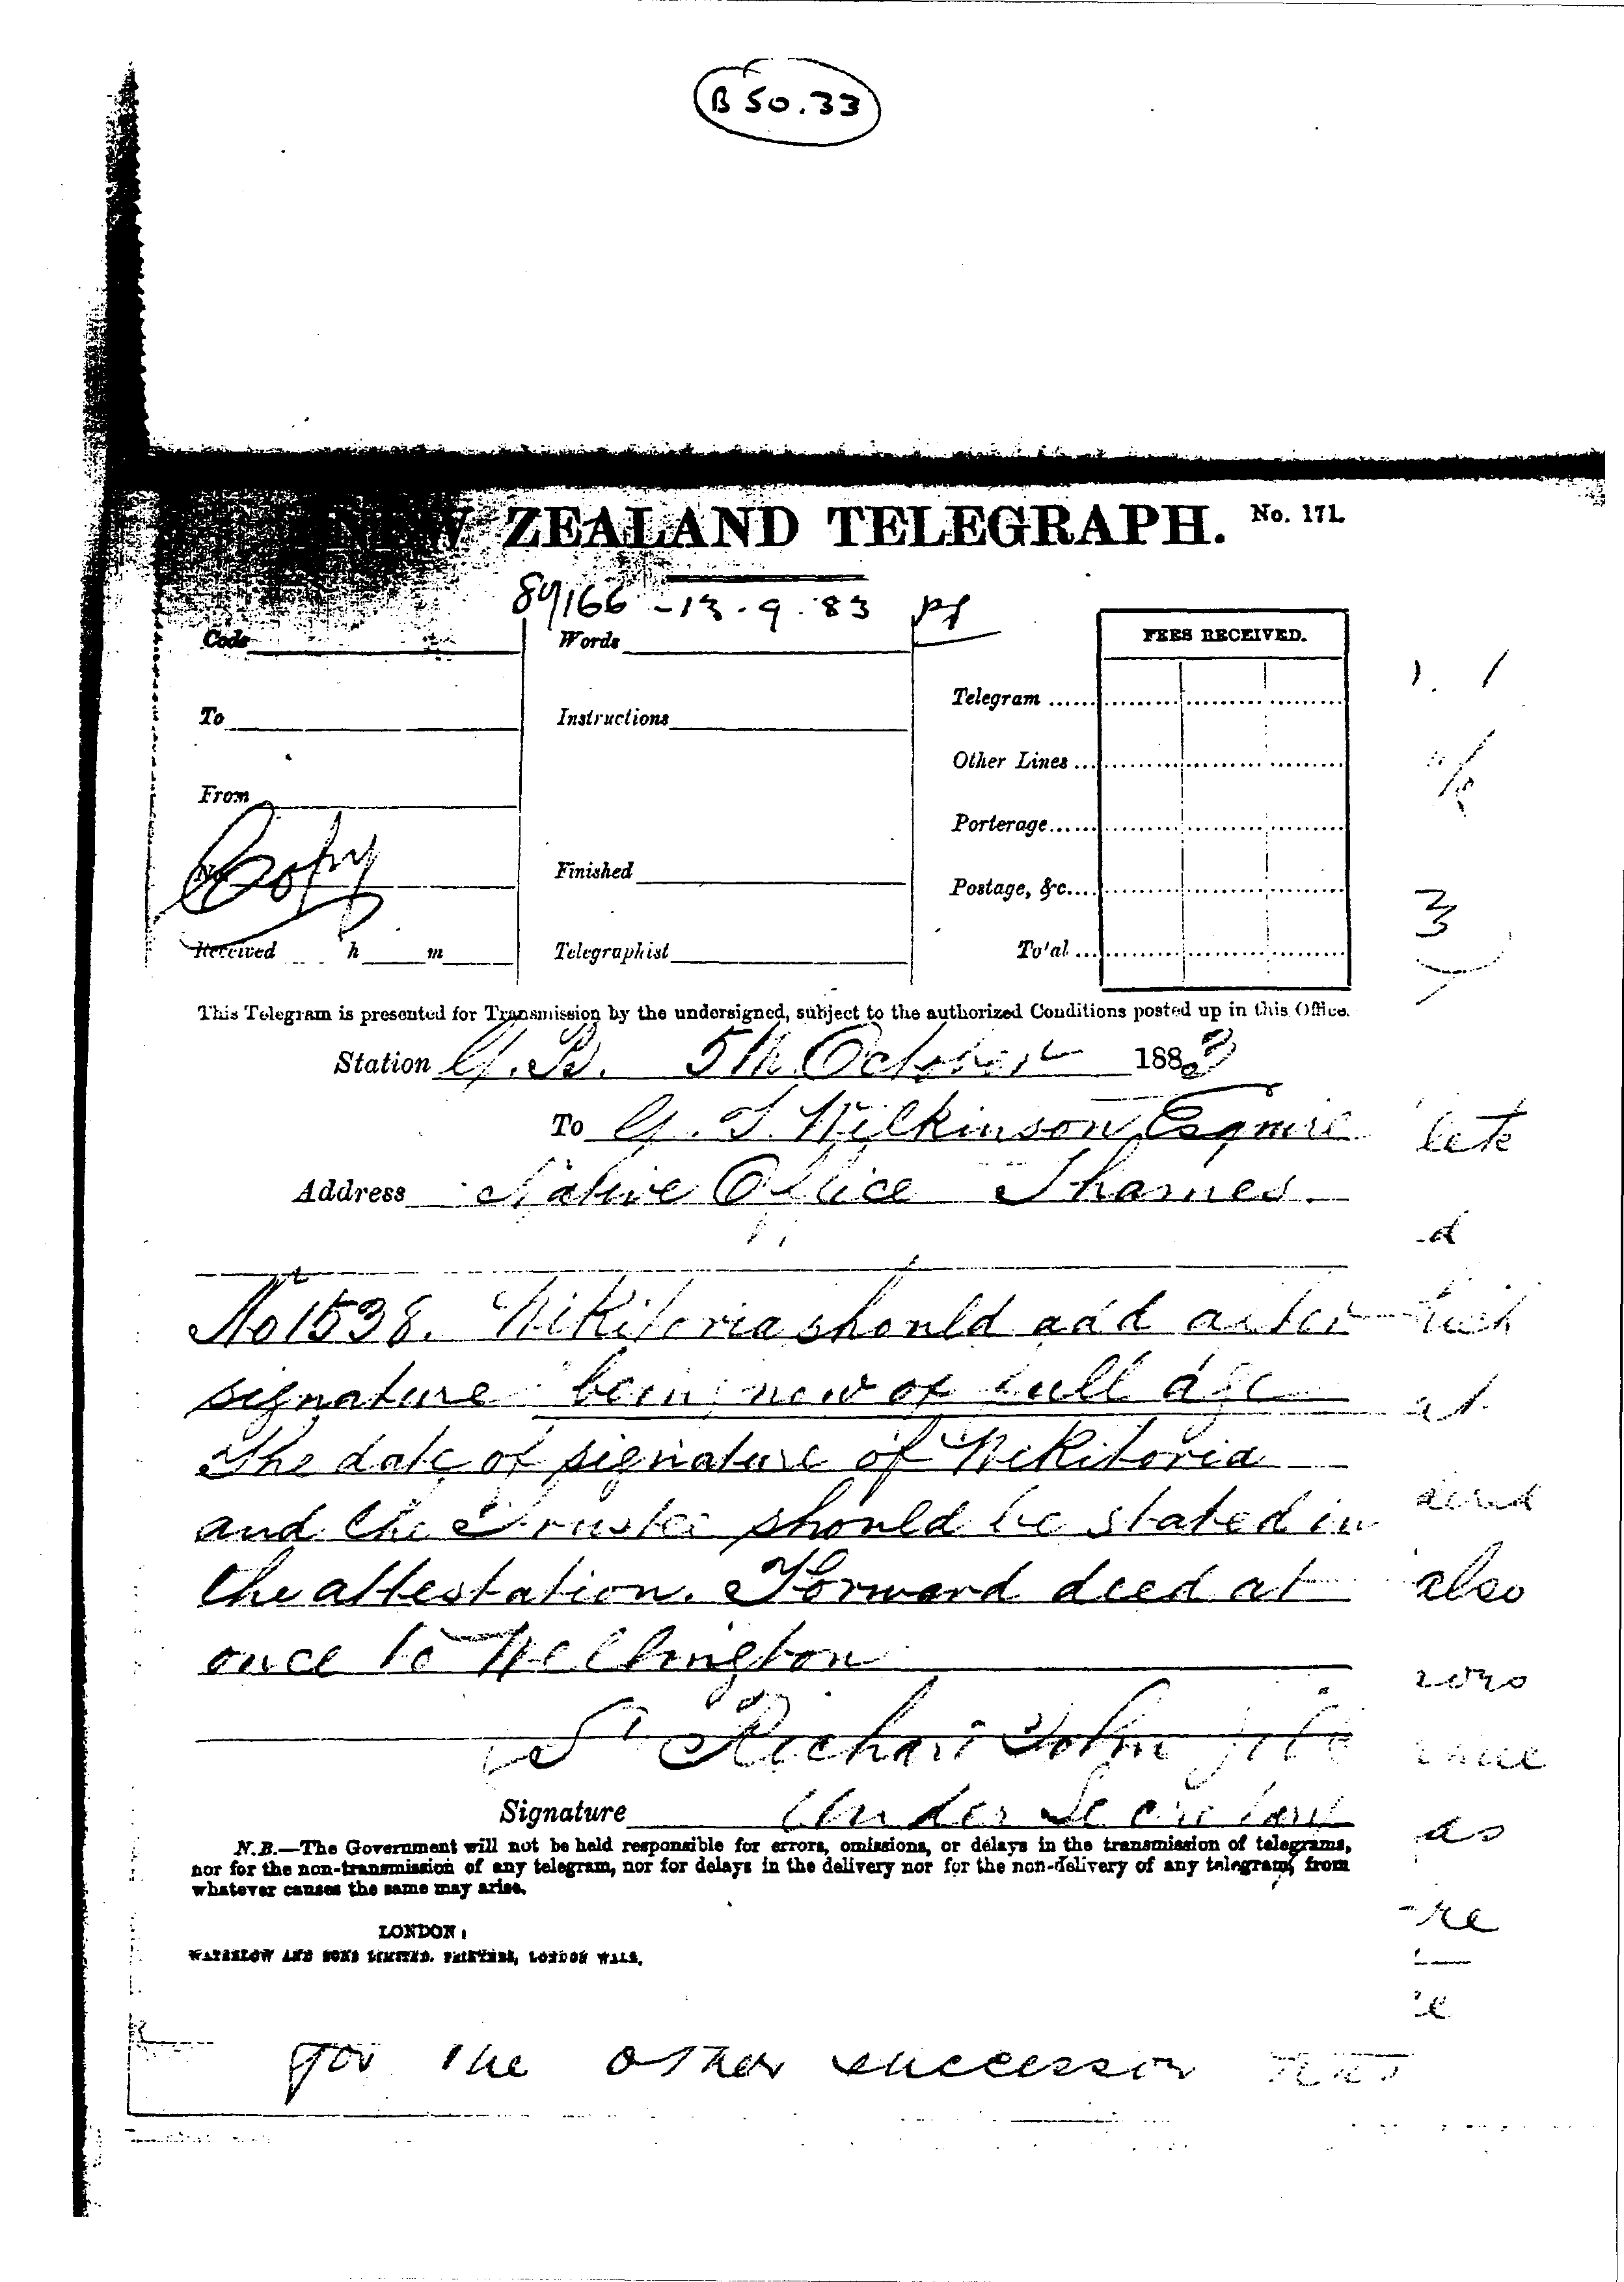 B 50.33
NEW ZEALAND TELEGRAPH. No. 171.
84/166 - 13.9.83
Code Words FEES RECEIVED.
To Instructions Telegram ......
Other Lines ...
From Porterage......
Copy
Finished Postage, &c....
Received h m Telegraphist To'al ...
This Telegram is presented for Transmission by the undersigned, subject to the authorized Conditions posted up in this Office.
Station G.B. 5th October 1883
To G. T. Wilkinson, Esquire
Address Native Office Thames.
No 1538. Wikitoria should add after
signature being now of full age
The date of signature of Wikitoria
and the Trustee should be stated in
the attestation. Forward deed at
once to Wellington
Richard John Gill
Signature Under Secretary
N.B.—The Government will not be held responsible for errors, omissions, or delays in the transmission of telegrams,
nor for the non-transmission of any telegram, nor for delays in the delivery nor for the non-delivery of any telegram, from
whatever causes the same may arise.
LONDON:
WATERLOW AND SONS LIMITED, PRINTERS, LONDON WALL.
for the other successor
3
lete
d
at
also
as
re